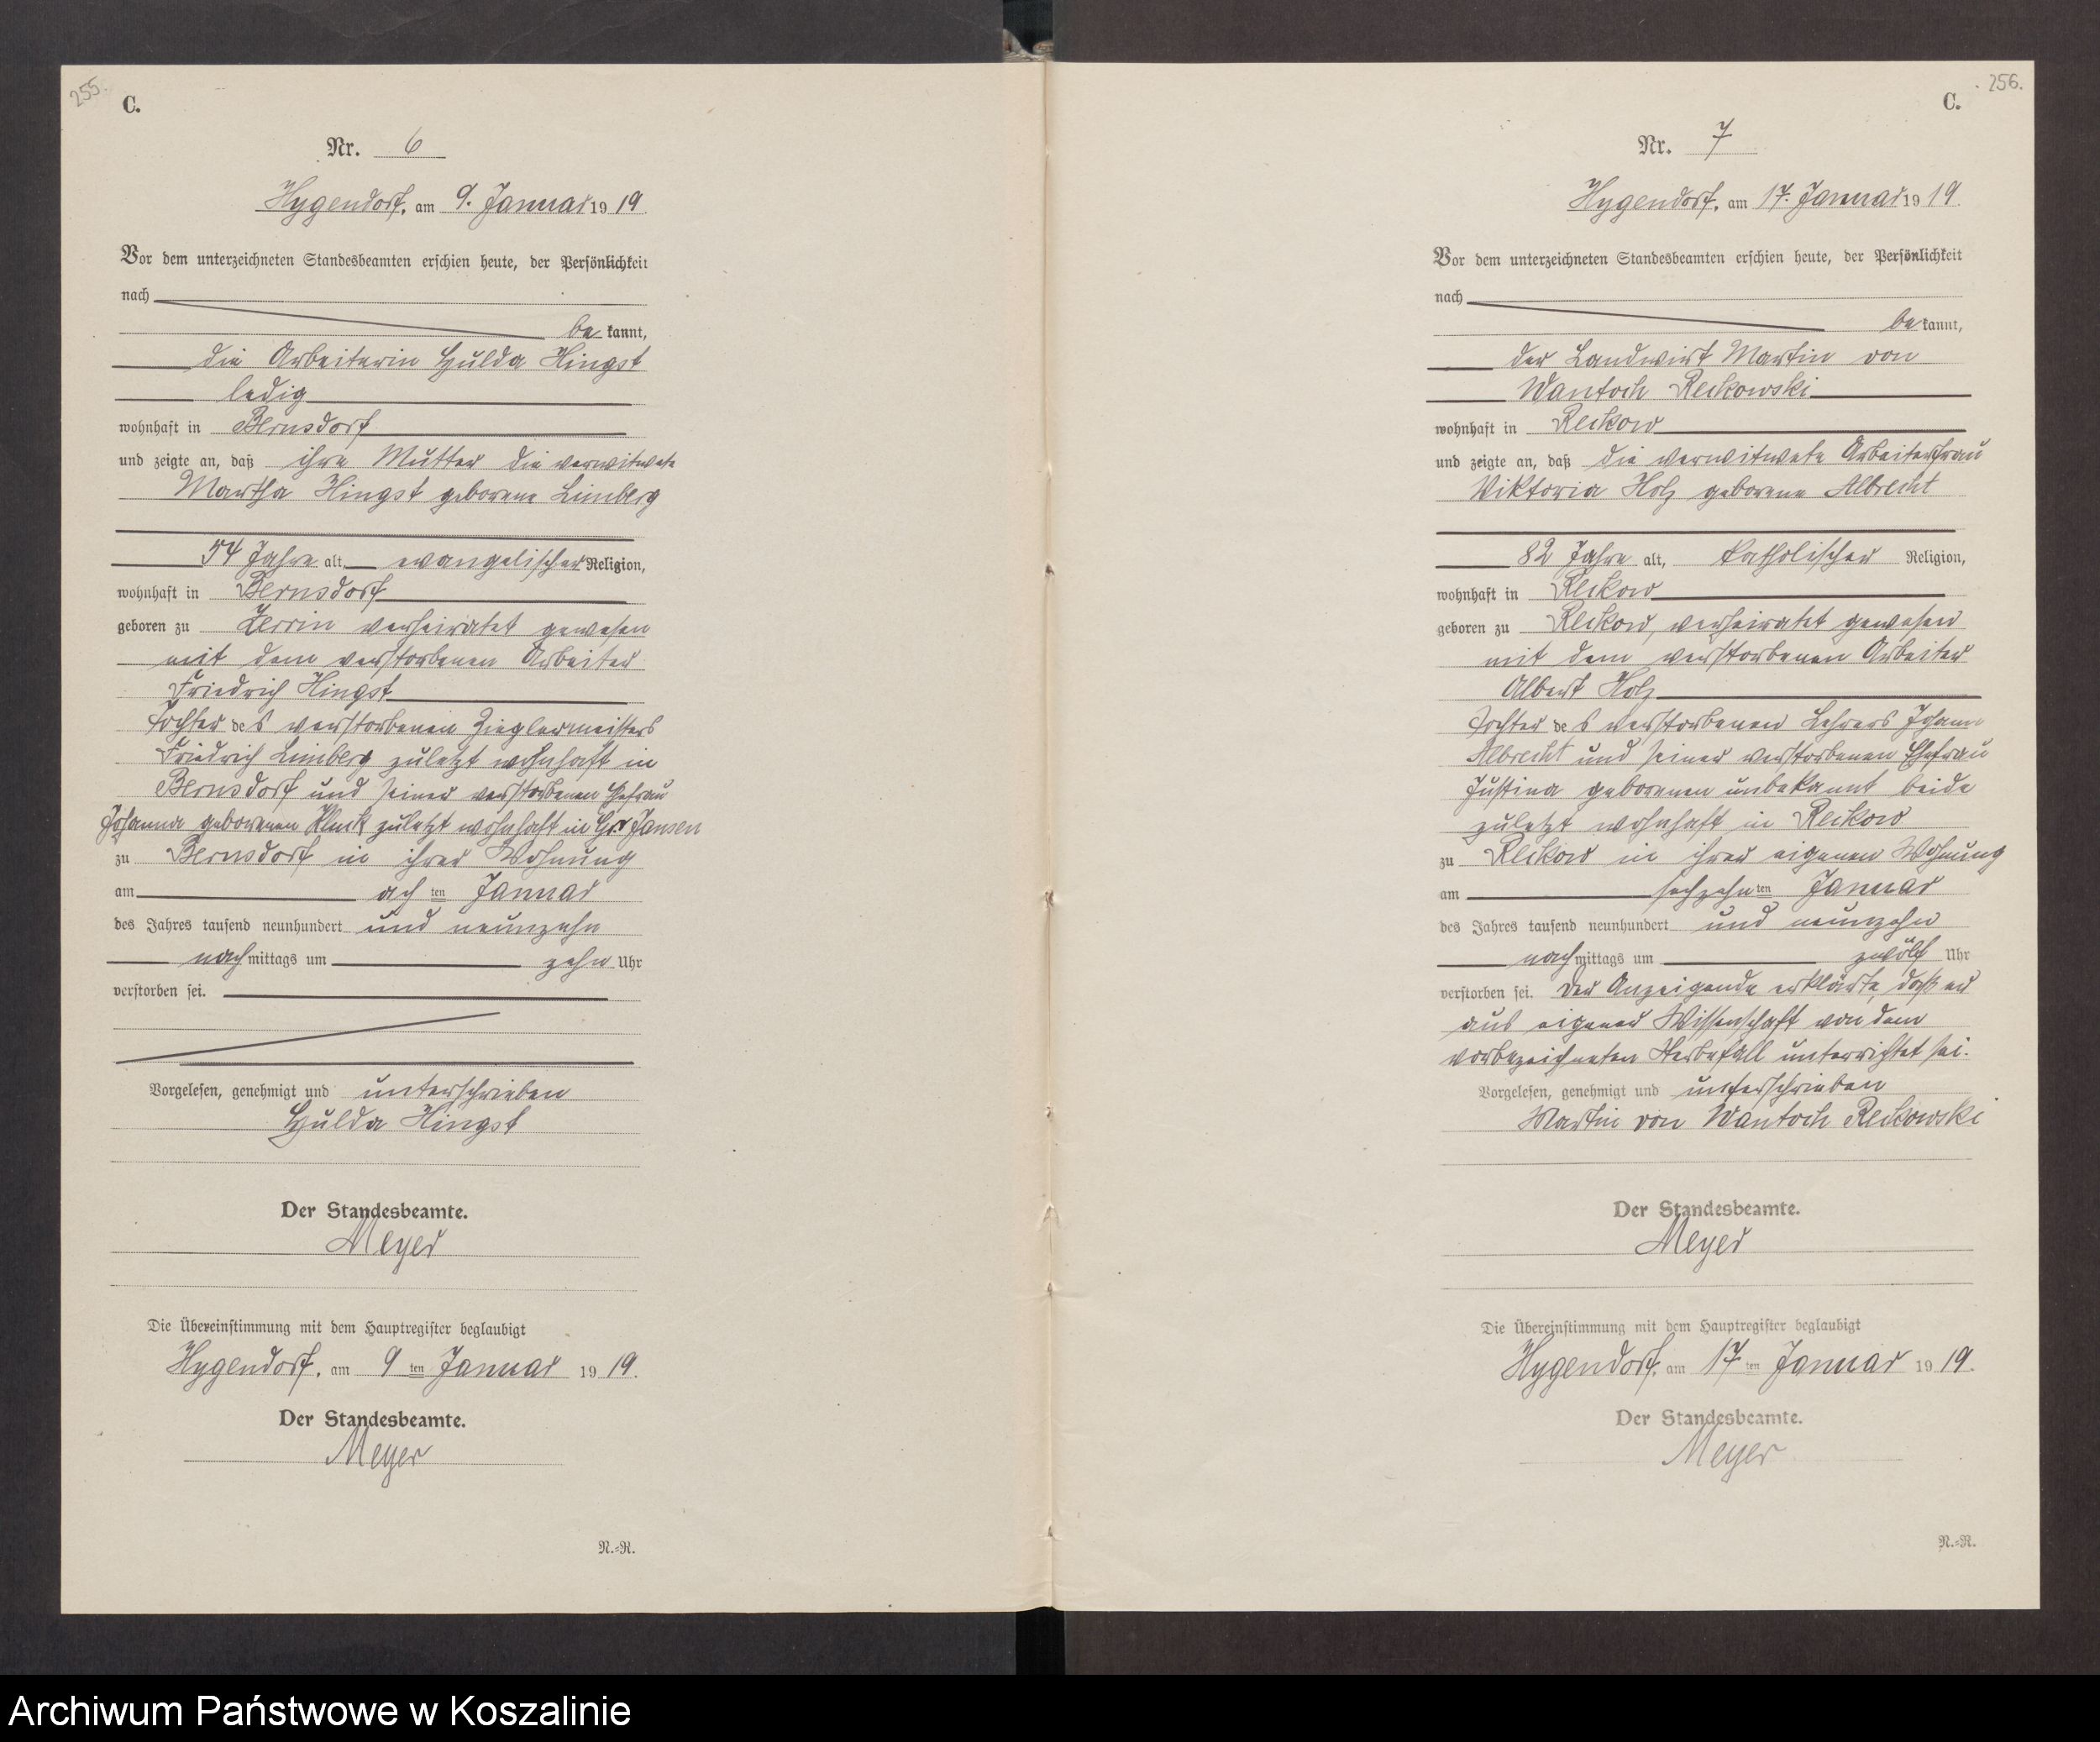 255.
C.
Nr. 6
Hygendorf, am 9. Januar 1919.
Vor dem unterzeichneten Standesbeamten erschien heute, der Persönlichkeit
nach
be kannt,
die Arbeiterin Hulda Hingst
ledig
wohnhaft in Bernsdorf
und zeigte an, daß ihre Mutter die verwitwete
Martha Hingst geborene Limberg
54 Jahre alt, evangelischer Religion,
wohnhaft in Bernsdorf
geboren zu Zerrin verheiratet gewesen
mit dem verstorbenen Arbeiter
Friedrich Hingst
Tochter des verstorbenen Zieglermeisters
Friedrich Limberg zuletzt wohnhaft in
Bernsdorf und seiner verstorbenen Ehefrau
Johanna geborenen Kluck zuletzt wohnhaft in Gr Jansen
zu Bernsdorf in ihrer Wohnung
am achten Januar
des Jahres tausend neunhundert und neunzehn
nachmittags um zehn Uhr
verstorben sei.
Vorgelesen, genehmigt und unterschrieben
Hulda Hingst
Der Standesbeamte.
Meyer
Die Übereinstimmung mit dem Hauptregister beglaubigt
Hygendorf, am 9ten Januar 1919.
Der Standesbeamte.
Meyer
N.=R.
256.
C.
Nr. 7
Hygendorf, am 17. Januar 1919.
Vor dem unterzeichneten Standesbeamten erschien heute, der Persönlichkeit
nach
be kannt,
der Landwirt Martin von
Wantoch Reckowski
wohnhaft in Reckow
und zeigte an, daß die verwitwete Arbeiterfrau
Viktoria Holz geborene Albrecht
82 Jahre alt, katholischer Religion,
wohnhaft in Reckow
geboren zu Reckow, verheiratet gewesen
mit dem verstorbenen Arbeiter
Albert Holz
Tochter des verstorbenen Lehrers Johann
Albrecht und seiner verstorbenen Ehefrau
Justina geborenen unbekannt beide
zuletzt wohnhaft in Reckow
zu Reckow in ihrer eigenen Wohnung
am sechzehnten Januar
des Jahres tausend neunhundert und neunzehn
nachmittags um zwölf Uhr
verstorben sei. Der Anzeigende erklärte, daß er
aus eigener Wissenschaft von dem
vorbezeichneten Sterbefall unterrichtet sei.
Vorgelesen, genehmigt und unterschrieben
Martin von Wantoch Reckowski
Der Standesbeamte.
Meyer
Die Übereinstimmung mit dem Hauptregister beglaubigt
Hygendorf, am 17ten Januar 1919.
Der Standesbeamte.
Meyer
N.=R.
Archiwum Państwowe w Koszalinie